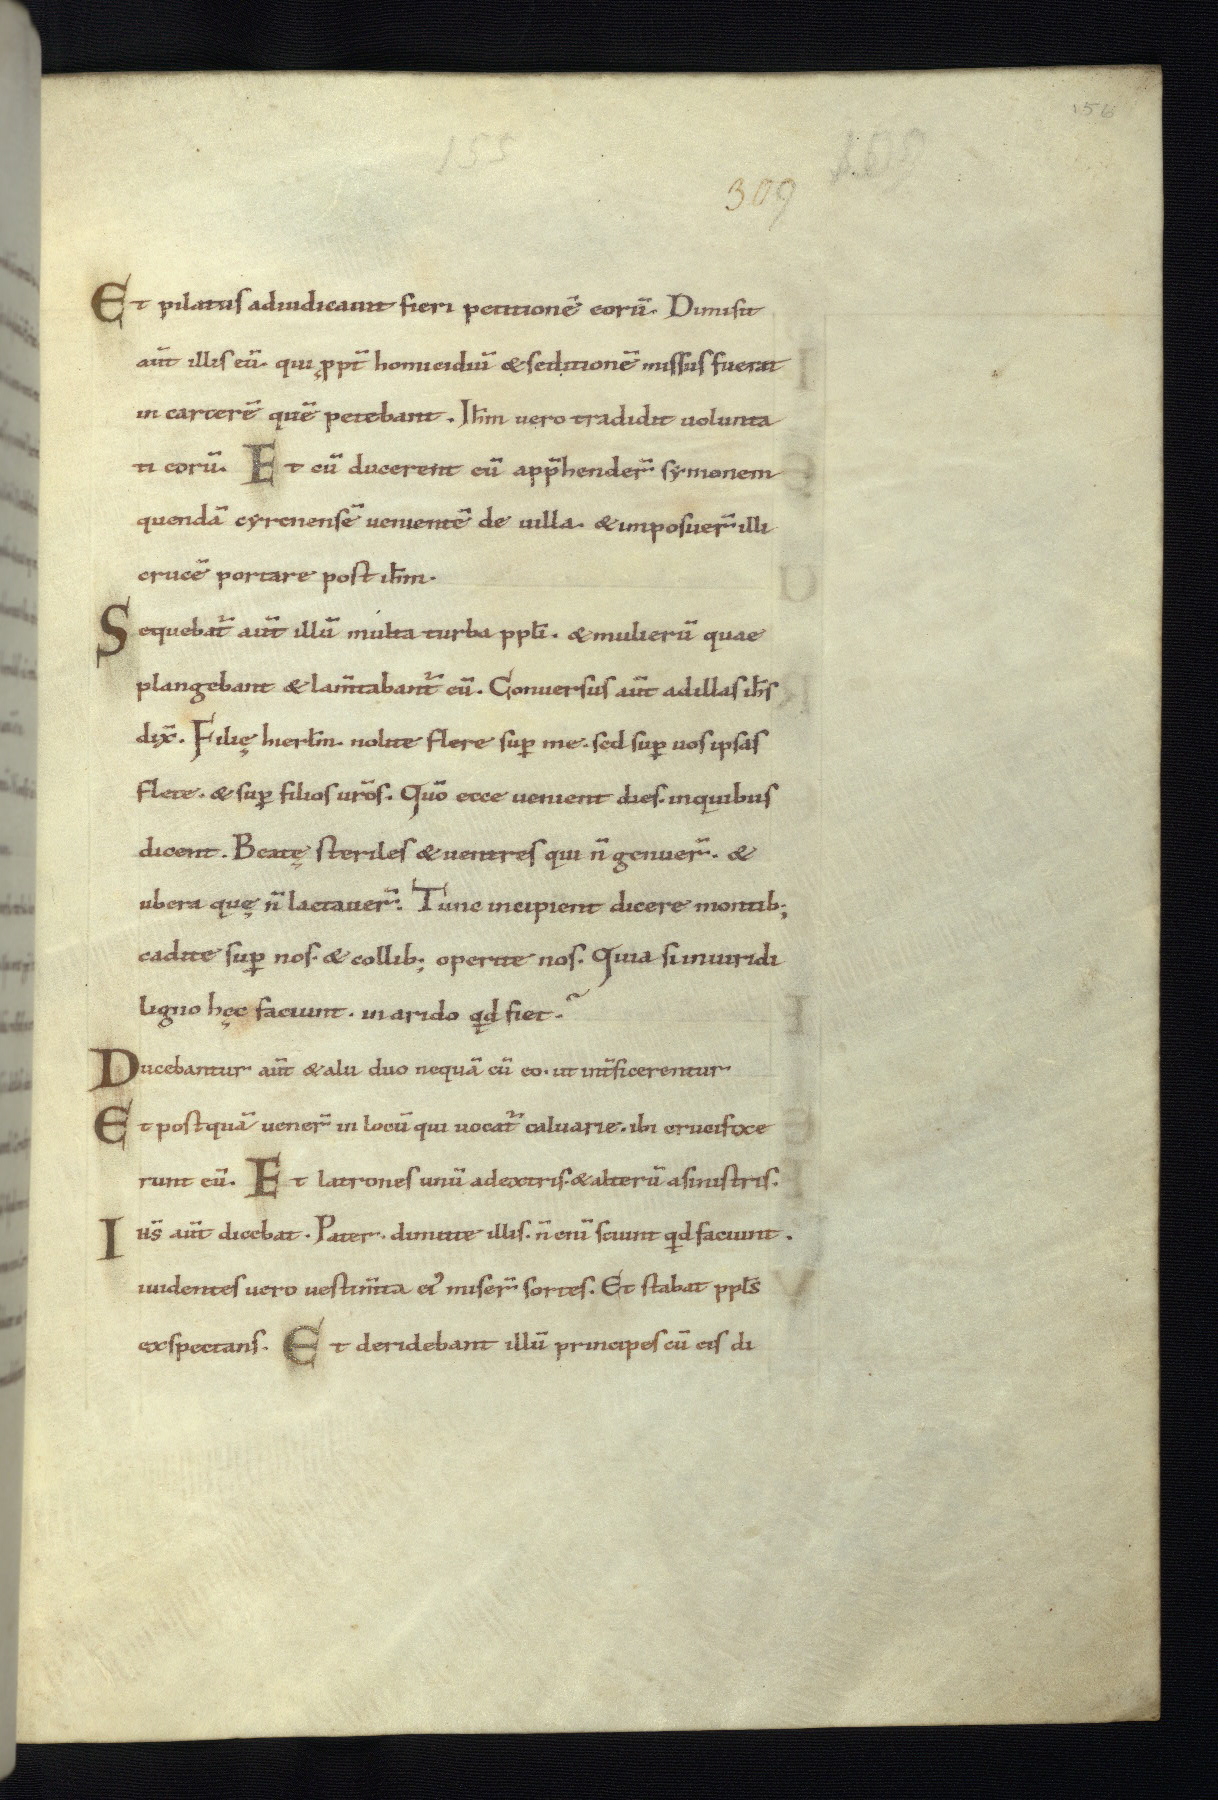 156
155
309
Et pilatus adiudicauit fieri petitionē eorū. Dimisit
aūt illis eū. qui ꝓpt̄ homicidiū & seditionē missus fuerat
in carcerē quē petebant. Ih̄m vero tradidit uolunta
ti eorū. Et cū ducerent eū app̄hender̄ symonem
quendā cyrenensē uenientē de uilla. & imposuer̄ illi
crucē portare post ih̄m.
Sequebat̄ aūt illū multa turba ppl̄i. & mulierū quae
plangebant & lam̄tabant̄ eū. Conuersus aūt ad illas ih̄s
dix̄. Filię hierl̄m. nolite flere suꝑ me. sed suꝑ uos ipsas
flete. & suꝑ filios ur̄os. Qūo ecce uenient dies. in quibus
dicent. Beatę steriles & uentres qui n̄ genuer̄. &
ubera quę n̄ lactauer̄. Tunc incipient dicere montib;
cadite suꝑ nos. & collib; operite nos. Quia si in uiridi
ligno hęc faciunt. in arido qd̄ fiet.
Ducebantur aūt & alii duo nequā cū eo. ut int̄ficerentur
Et postquā uener̄ in locū qui uocat̄ caluarie. ibi crucifixe
runt eū. Et latrones unū a dextris. & alterū a sinistris.
Ihs̄ aūt dicebat. Pater. dimitte illis. n̄ enī sciunt qd̄ faciunt.
iuidentes uero uestim̄ta ei᾿ miser̄ sortes. Et stabat ppl̄s
exspectans. Et deridebant illū principes cū eis di